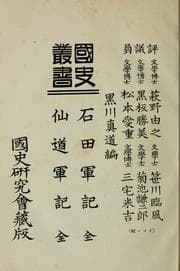 評 文學博士 萩野由之 笹川臨風
議 文學博士 黒板勝美 菊池謙二郎
員 文學博士 松本愛重 文學博士 三宅米吉
黒川真道編
國史叢書
石田軍記 全
仙道軍記 全
國史研究會藏版